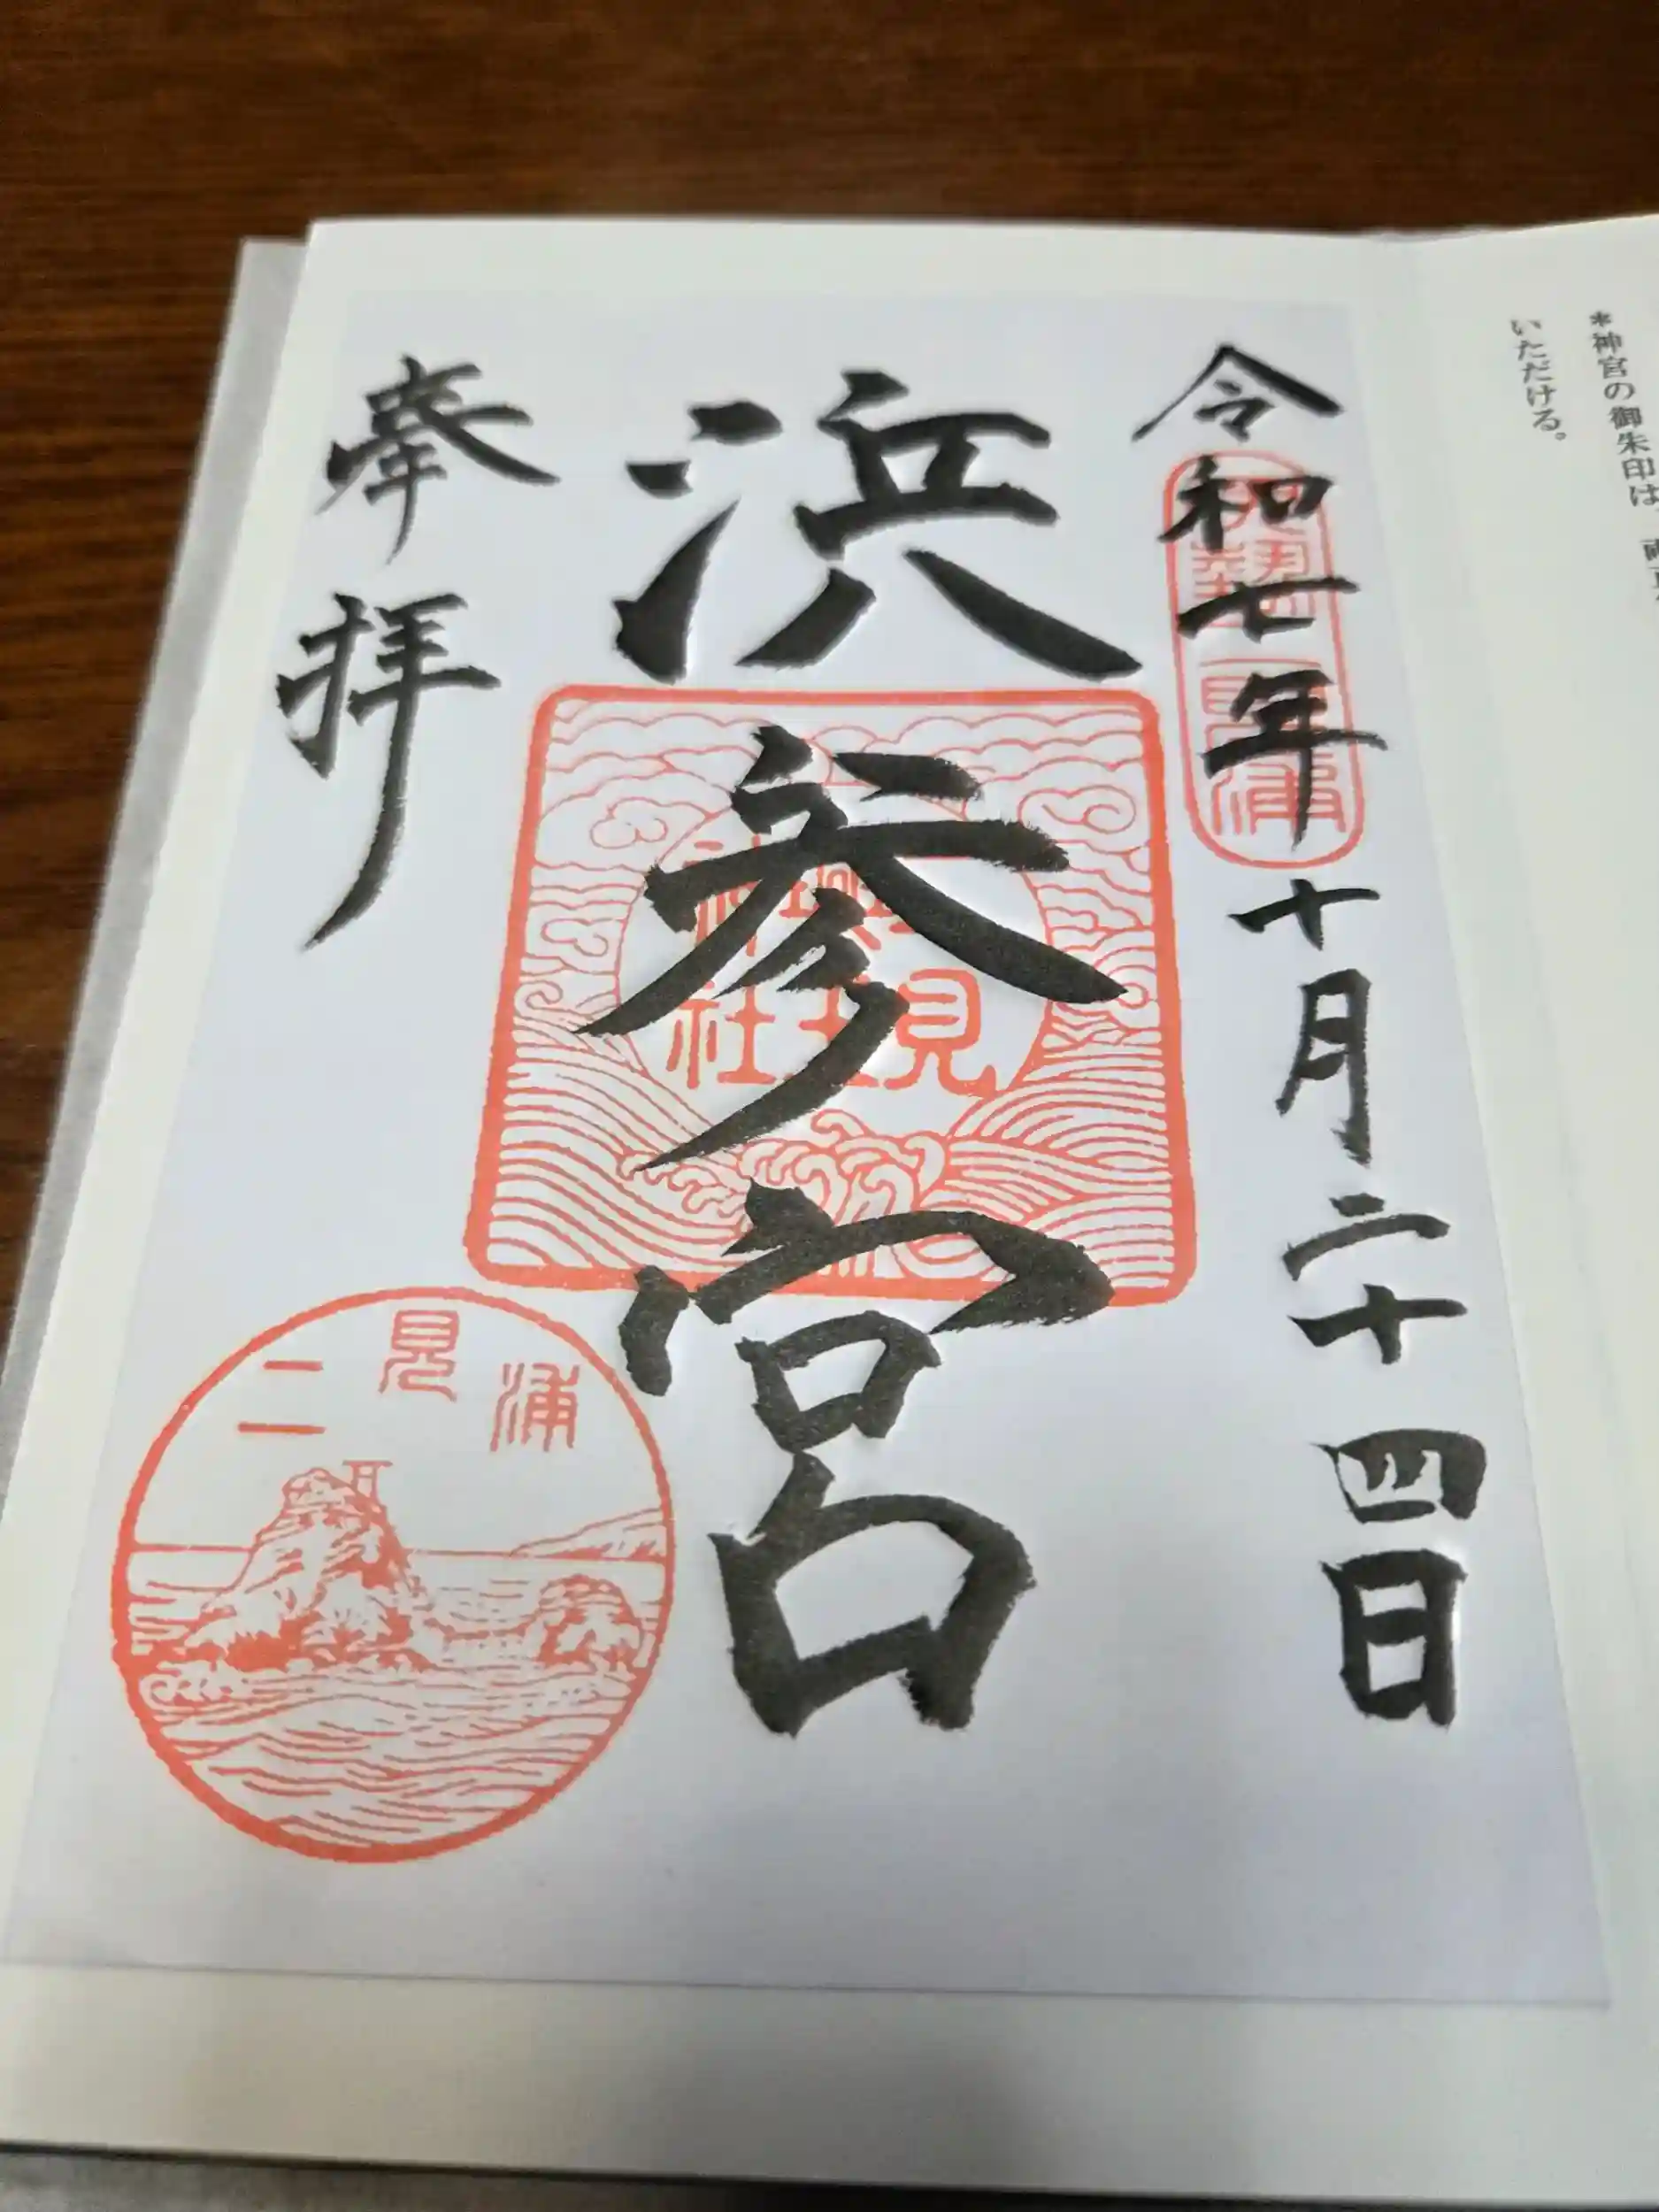 *神宮の御朱印は、
いただける。
令和七年十月二十四日
浜参宮
奉拝
二見浦